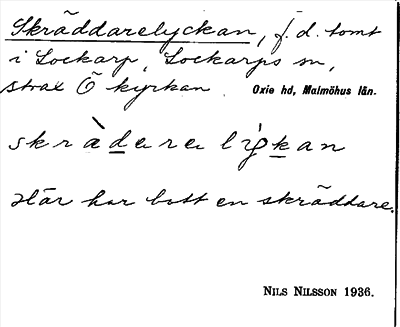 Skräddarelyckan, f.d. tomt
i Lockarp, Lockarps sn,
strax Ö kyrkan. Oxie hd, Malmöhus län.
skràdara lẏkan
Här har bott en skräddare.
NILS NILSSON 1936.